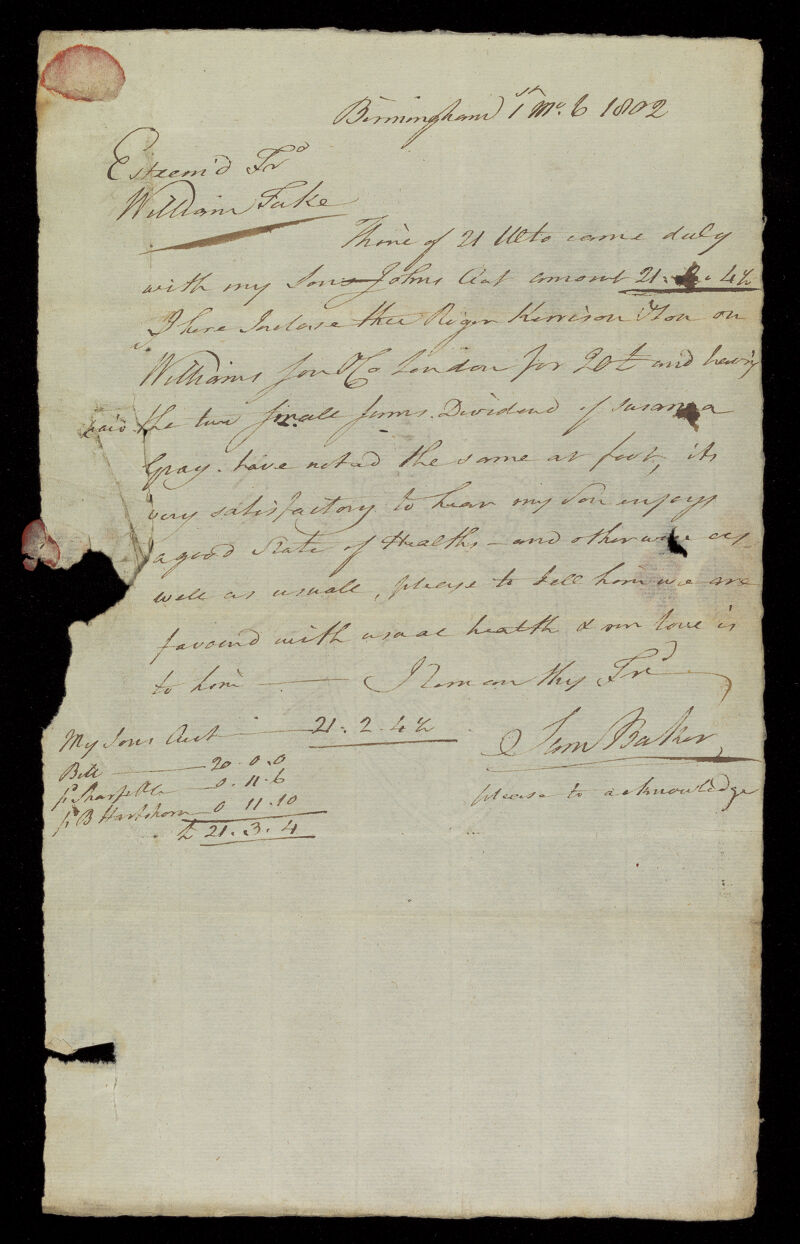 Birmingham 1st Mo. 6 1802
Esteem'd Frd
William Tuke
Thine of 21 Ulto came duly
with my Sons Johns Act amont 21. 2. 4½
I here Inclose thee Roger Kerrison & Son on
Williams Son & Co London for 20£ and having
paid the two small sums. Dividend of Susanna
Gray. have noted the same at foot, its
very satisfactory to hear my Son enjoys
a good State of Health – and otherwise as
well as usuall, please to tell him we are
favourd with usual health & our love is
to him — I Remain thy Frd
Sam Baker
please to acknowledge
My Sons Acct — 21. 2. 4½
Bill — 20. 0. 0
pr Sharples — 0. 11. 6
pr B Hartshorn — 0 11. 10
£ 21. 3. 4